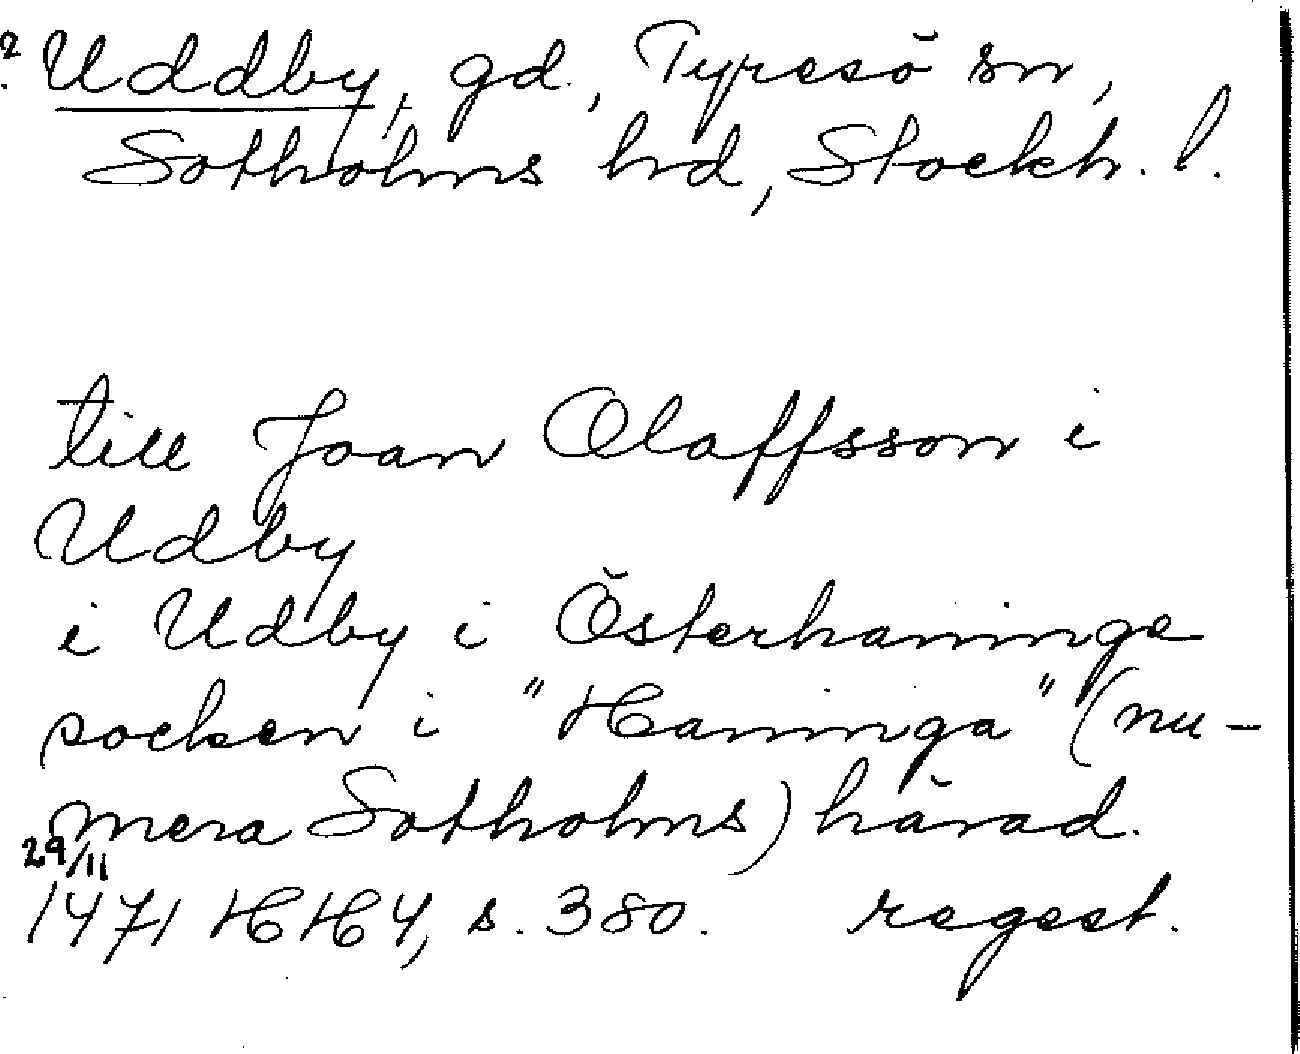 ? Uddby, gd., Tyresö sn,
Sotholms hd, Stockh. l.
till Joan Olaffsson i
Udby
i Udby i Österhaninge
socken i "Haninga" (nu-
mera Sotholms) härad.
29/11
1471 HH 4, s. 380. regest.